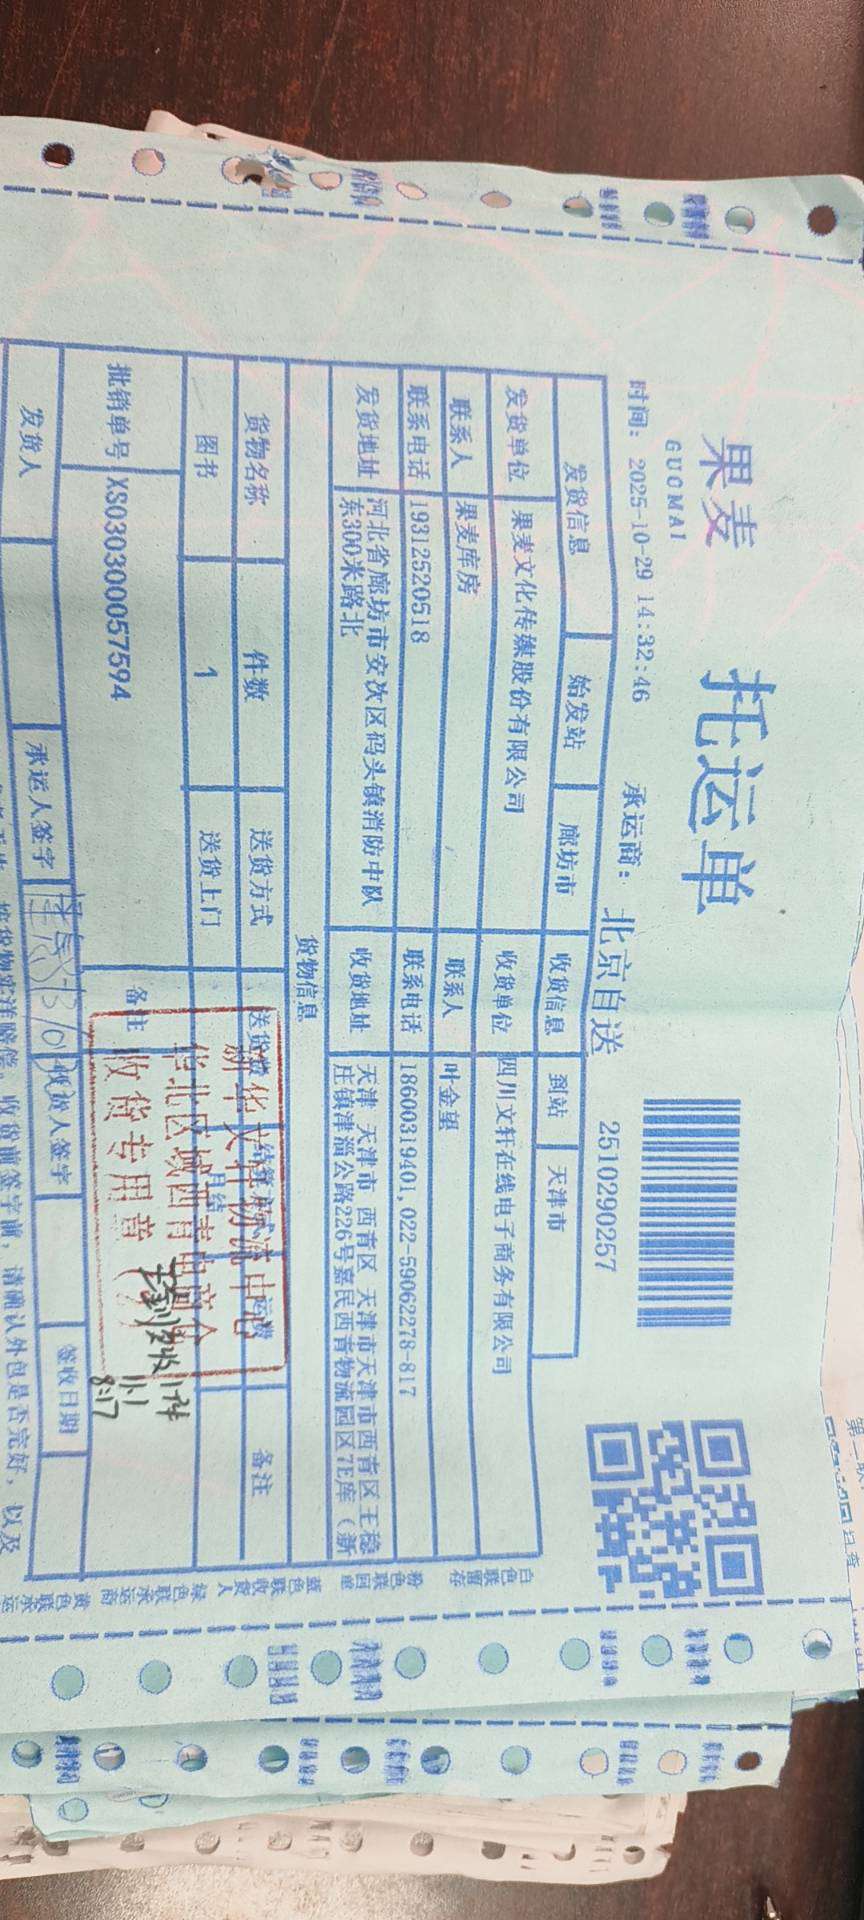 果麦
GUOMAI
托运单
时间: 2025-10-29 14:32:46 承运商: 北京自送 2510290257
发货信息 始发站 廊坊市 收货信息 到站 天津市
发货单位 果麦文化传媒股份有限公司 收货单位 四川文轩在线电子商务有限公司
联系人 果麦库房 联系人 叶金望
联系电话 19312520518 联系电话 18600319401,022-59062278-817
发货地址 河北省廊坊市安次区码头镇消防中队东300米路北 收货地址 天津 天津市 西青区 天津市天津市西青区王稳庄镇津淄公路226号嘉民西青物流园区7E库（新
货物信息
货物名称 件数 送货方式 送货费 运费 备注
图书 1 送货上门 月结
批销单号 XS030300057594 备注
新华文轩物流中心
华北区域西青电商仓
收货专用章
实收1件
11.1
8:17
发货人 承运人签字 收货人签字 签收日期
按货物实洋赔偿。收货前签字前，请确认外包是否完好，以及
白色联留存
粉色联回单
蓝色联收货人
绿色联承运商
黄色联承运